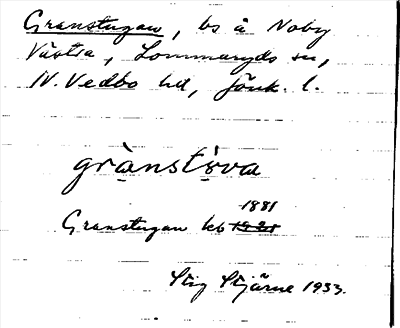 Granstugan, bs å Noby
Västra, Lommaryds sn,
N. Vedbo hd, Jönk. l.
grànstŏ̤va
1881
Granstugan kb 1921
Stig Stjärne 1933.